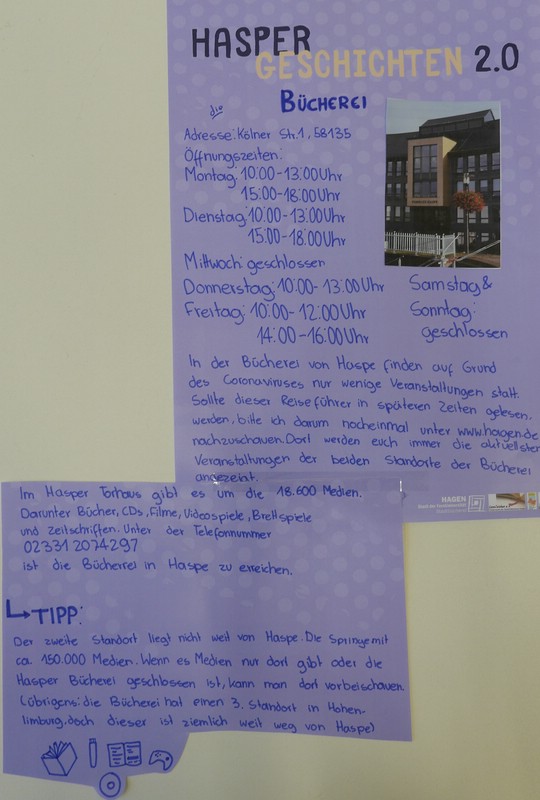 HASPER
GESCHICHTEN 2.0
die BÜCHEREI
Adresse: Kölner Str. 1, 58135
Öffnungszeiten:
Montag: 10:00-13:00 Uhr
15:00-18:00 Uhr
Dienstag: 10:00-13:00 Uhr
15:00-18:00 Uhr
Mittwoch: geschlossen
Donnerstag: 10:00-13:00 Uhr
Freitag: 10:00-12:00 Uhr
14:00-16:00 Uhr
Samstag &
Sonntag:
geschlossen
In der Bücherei von Haspe finden auf Grund
des Coronaviruses nur wenige Veranstaltungen statt.
Sollte dieser Reiseführer in späteren Zeiten gelesen.
werden, bitte ich darum nocheinmal unter www.hagen.de
nachzuschauen. Dort werden euch immer die aktuellsten
Veranstaltungen der beiden Standorte der Bücherei
angezeigt.
HAGEN
Stadt der FernUniversität
Im Hasper Torhaus gibt es um die 18.600 Medien.
Darunter Bücher, CDs, Filme, Videospiele, Brettspiele
und Zeitschriften. Unter der Telefonnummer
02331 2074297
ist die Bücherrei in Haspe zu erreichen.
TIPP:
Der zweite Standort liegt nicht weit von Haspe. Die Springe mit
ca. 150.000 Medien. Wenn es Medien nur dort gibt oder die
Hasper Bücherei geschlossen ist, kann man dort vorbeischauen.
(übrigens: die Bücherei hat einen 3. Standort in Hohen-
limburg. doch dieser ist ziemlich weit weg von Haspe)